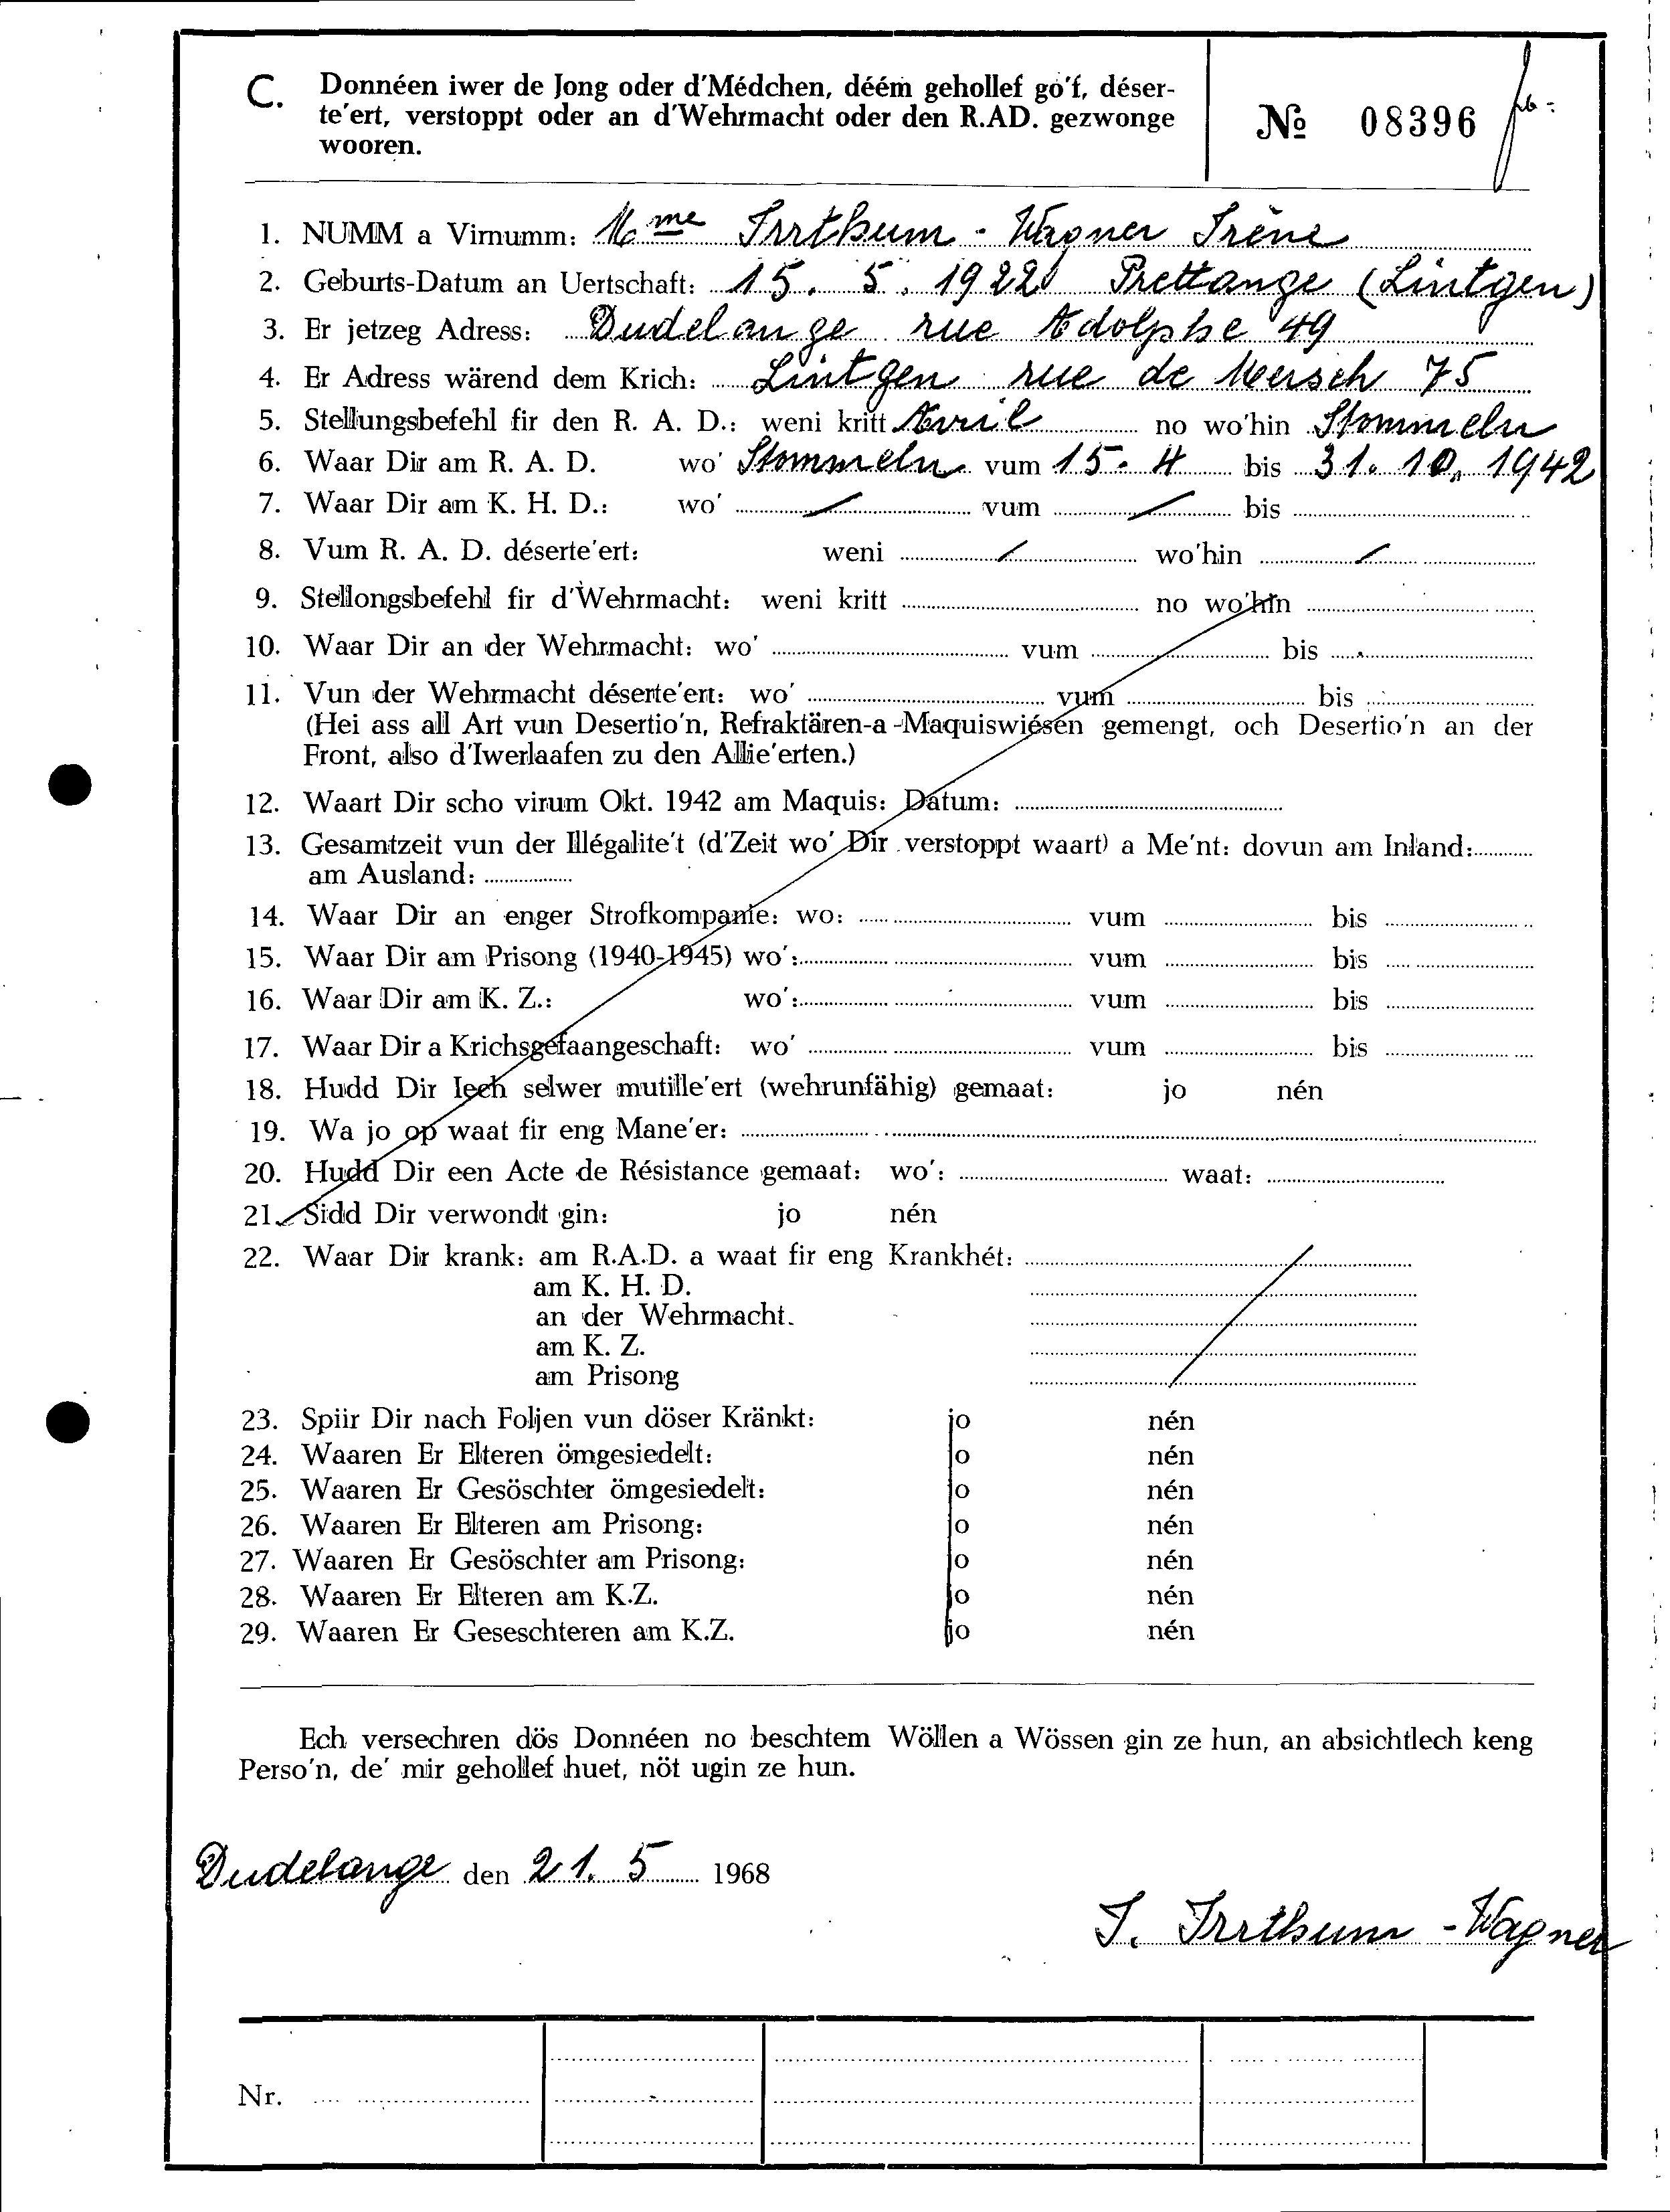 C. Donnéen iwer de Jong oder d'Médchen, déém gehollef go'f, déser-
te'ert, verstoppt oder an d'Wehrmacht oder den R.AD. gezwonge
wooren.
№ 08396
1. NUMM a Virnumm: Mme Irrthum - Wagner Irène
2. Geburts-Datum an Uertschaft: 15. 5. 1922 Prettange (Lintgen)
3. Er jetzeg Adress: Dudelange rue Adolphe 49
4. Er Adress wärend dem Krich: Lintgen rue de Mersch 75
5. Stellungsbefehl fir den R. A. D.: weni kritt Avril no wo'hin Stommeln
6. Waar Dir am R. A. D. wo' Stommeln vum 15. 4 bis 31. 10. 1942
7. Waar Dir am K. H. D.: wo' / vum / bis
8. Vum R. A. D. déserte'ert: weni / wo'hin /
9. Stellongsbefehl fir d'Wehrmacht: weni kritt no wo'hin
10. Waar Dir an der Wehrmacht: wo' vum bis
11. Vun der Wehrmacht déserte'ert: wo' vum bis
(Hei ass all Art vun Desertio'n, Refraktären-a -Maquiswiésen gemengt, och Desertio'n an der
Front, also d'Iwerlaafen zu den Allie'erten.)
12. Waart Dir scho virum Okt. 1942 am Maquis: Datum:
13. Gesamtzeit vun der Illégalite't (d'Zeit wo' Dir verstoppt waart) a Me'nt: dovun am Inland:
am Ausland:
14. Waar Dir an enger Strofkompanie: wo: vum bis
15. Waar Dir am Prisong (1940-1945) wo': vum bis
16. Waar Dir am K. Z.: wo': vum bis
17. Waar Dir a Krichsgefaangeschaft: wo' vum bis
18. Hudd Dir Iech selwer mutille'ert (wehrunfähig) gemaat: jo nén
19. Wa jo op waat fir eng Mane'er:
20. Hudd Dir een Acte de Résistance gemaat: wo': waat:
21. Sidd Dir verwondt gin: jo nén
22. Waar Dir krank: am R.A.D. a waat fir eng Krankhét:
am K. H. D.
an der Wehrmacht.
am K. Z.
am Prisong
23. Spiir Dir nach Foljen vun döser Kränkt: jo nén
24. Waaren Er Elteren ömgesiedelt: jo nén
25. Waaren Er Gesöschter ömgesiedelt: jo nén
26. Waaren Er Elteren am Prisong: jo nén
27. Waaren Er Gesöschter am Prisong: jo nén
28. Waaren Er Elteren am K.Z. jo nén
29. Waaren Er Geseschteren am K.Z. jo nén
Ech versechren dös Donnéen no beschtem Wöllen a Wössen gin ze hun, an absichtlech keng
Perso'n, de' mir gehollef huet, nöt ugin ze hun.
Dudelange den 21. 5 1968
I. Irrthum - Wagner
Nr.